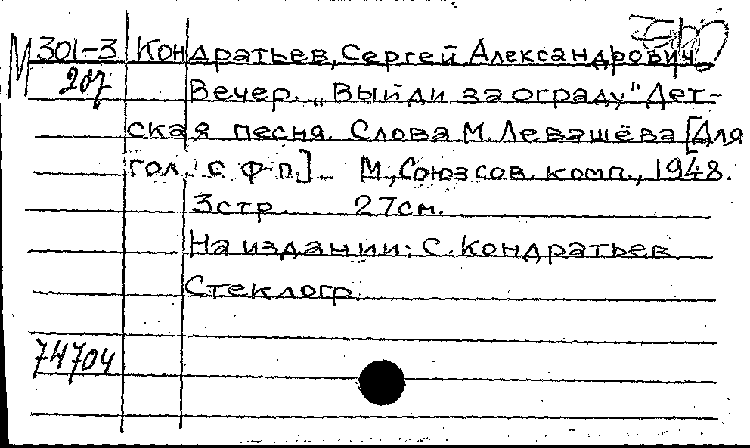 М 301-3 Кондратьев, Сергей Александрович.
207 Вечер. „Выйди за ограду" Дет-
ская песня. Слова М. Левашёва [Для
гол. с ф-п.] _ М., Союз сов. комп., 1948.
3 стр. 27 см.
На издании: С. Кондратьев
Стеклогр.
74704